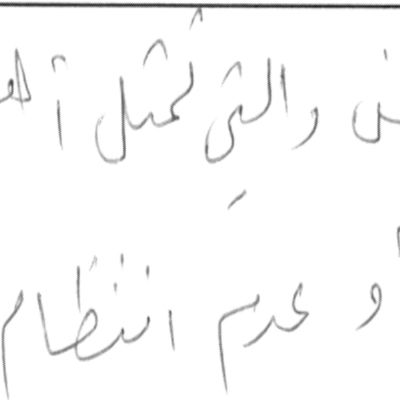 والتي تمثل
أو عدم انتظام